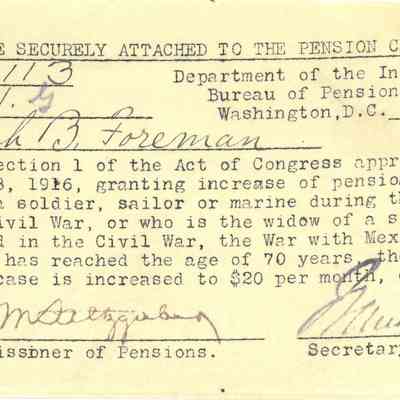 E SECURELY ATTACHED TO THE PENSION C
113
Department of the In
Bureau of Pension
Washington,D.C.
h B. Foreman
ection 1 of the Act of Congress appr
8, 1916, granting increase of pensio
a soldier, sailor or marine during th
ivil War, or who is the widow of a s
d in the Civil War, the War with Mex
has reached the age of 70 years, the
case is increased to $20 per month,
issioner of Pensions.
Secretary